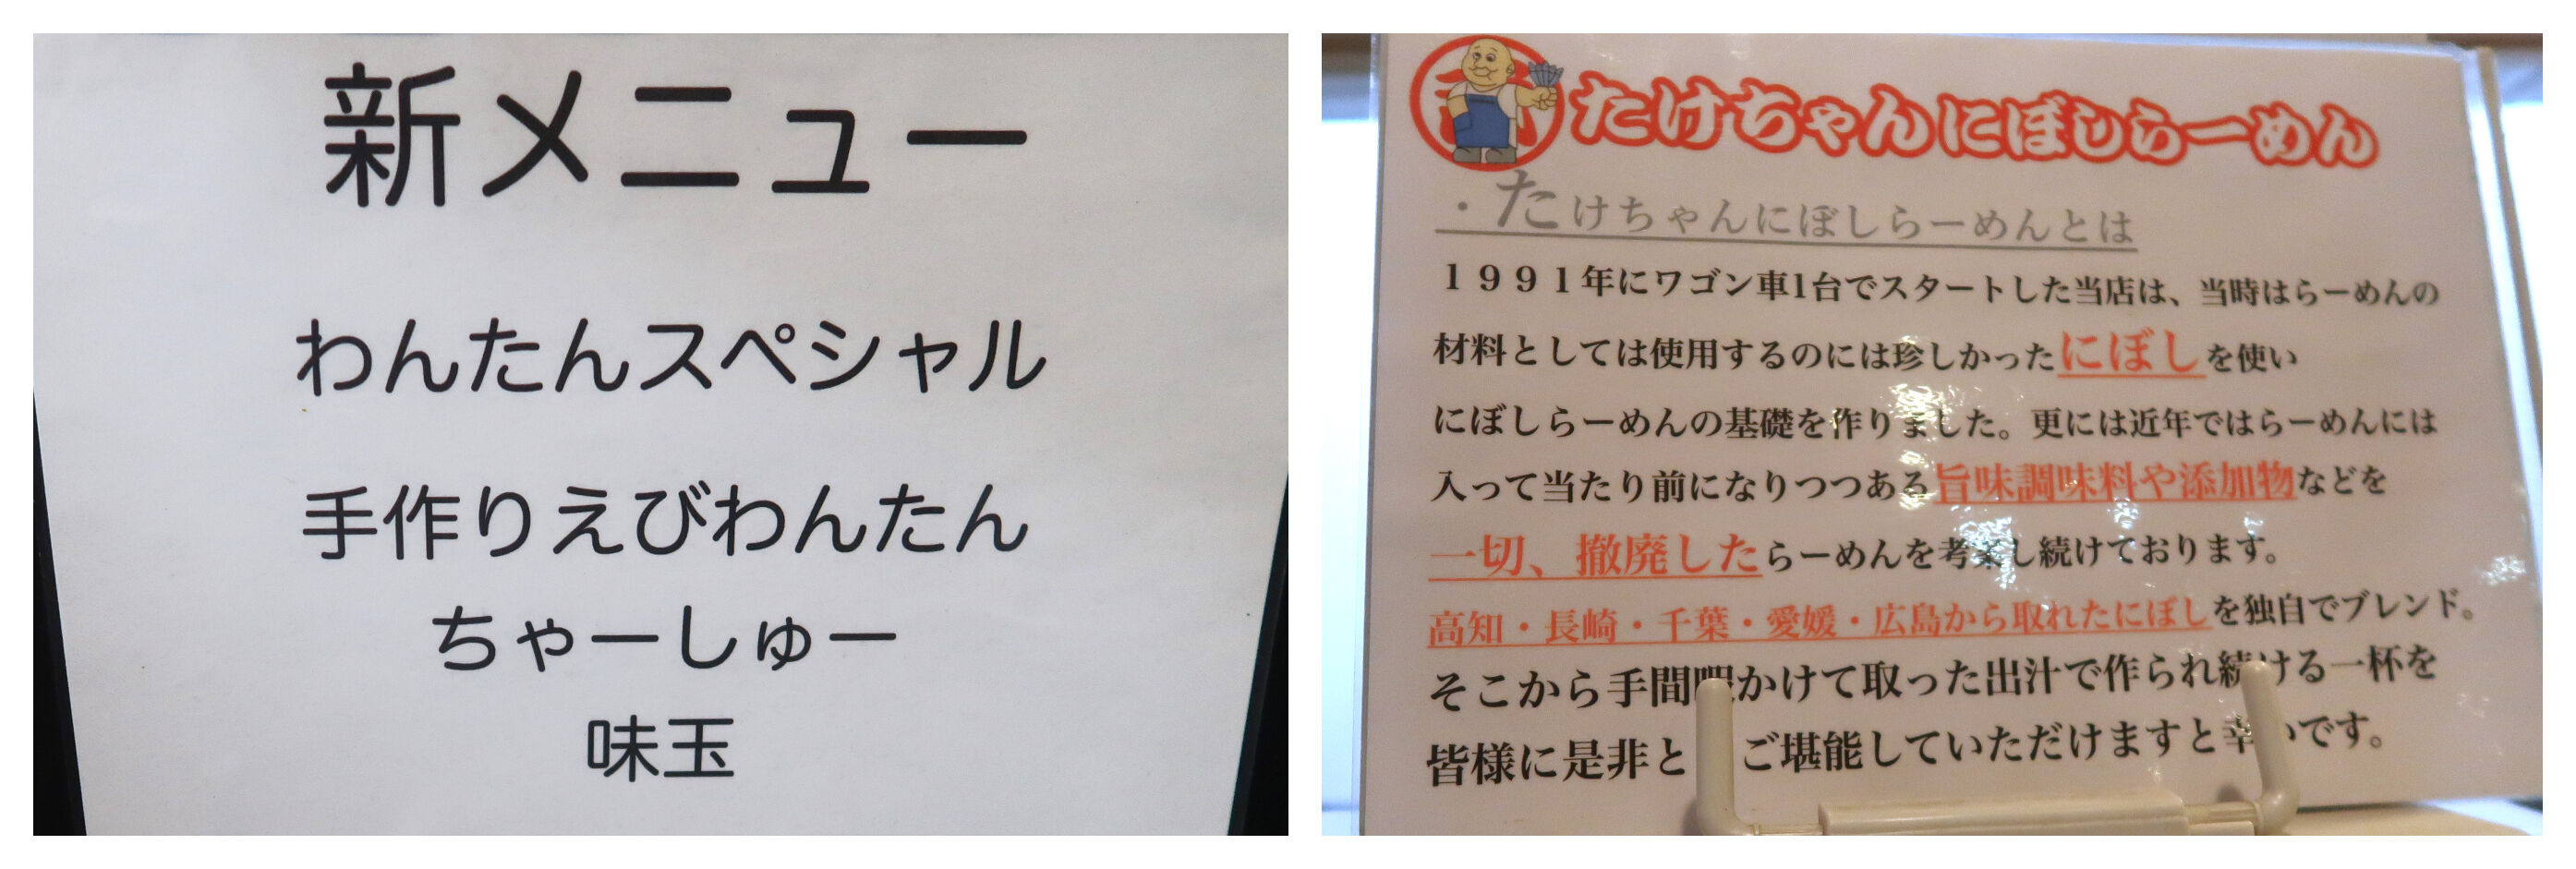 新メニュー
わんたんスペシャル
手作りえびわんたん
ちゃーしゅー
味玉
たけちゃんにぼしらーめん
・たけちゃんにぼしらーめんとは
１９９１年にワゴン車1台でスタートした当店は、当時はらーめんの
材料としては使用するのには珍しかったにぼしを使い
にぼしらーめんの基礎を作りました。更には近年ではらーめんには
入って当たり前になりつつある旨味調味料や添加物などを
一切、撤廃したらーめんを考案し続けております。
高知・長崎・千葉・愛媛・広島から取れたにぼしを独自でブレンド。
そこから手間暇かけて取った出汁で作られ続ける一杯を
皆様に是非と ご堪能していただけますと幸いです。